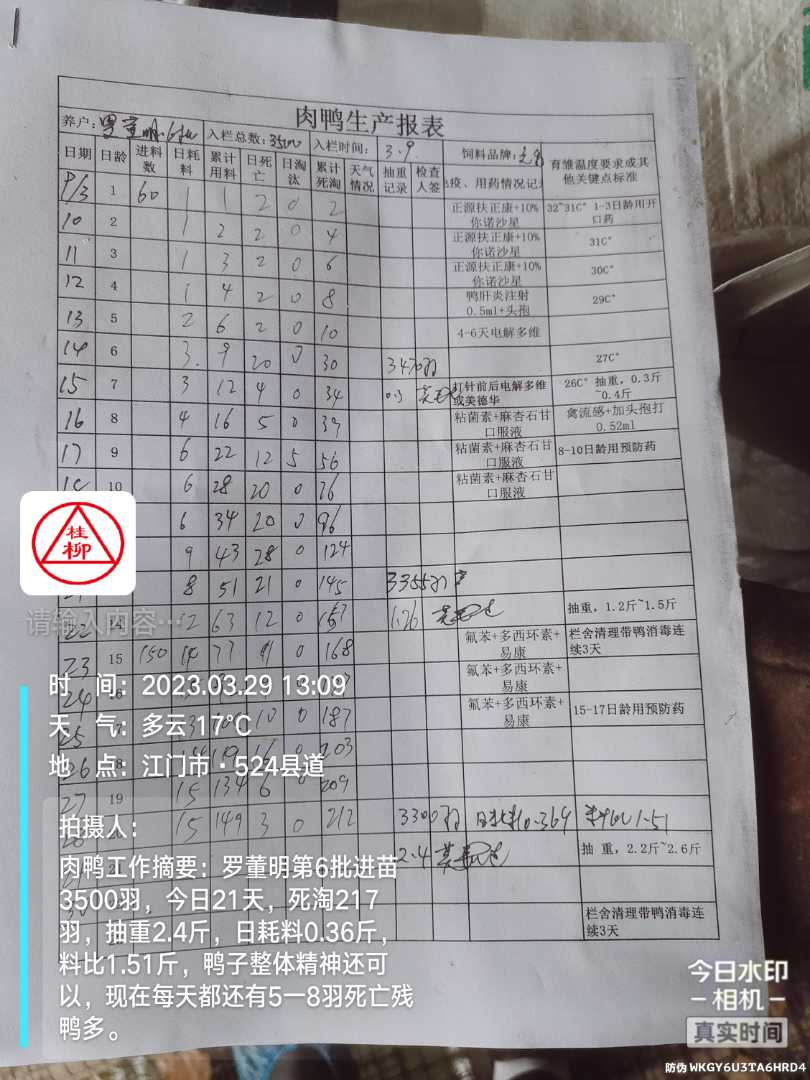 肉鸭生产报表
养户: 罗董明 6批 入栏总数: 3500 入栏时间: 3.9 饲料品牌:
日期 日龄 进料数 日耗料 累计用料 日死亡 日淘汰 累计死淘 天气情况 抽重记录 检查人签 疫、用药情况记 育雏温度要求或其他关键点标准
9/3 1 60 1 1 2 0 2 正源扶正康+10%你诺沙星 32~31C° 1-3日龄用开口药
10 2 1 2 2 0 4 正源扶正康+10%你诺沙星 31C°
11 3 1 3 2 0 6 正源扶正康+10%你诺沙星 30C°
12 4 1 4 2 0 8 鸭肝炎注射0.5ml+头孢 29C°
13 5 2 6 2 0 10 4-6天电解多维
14 6 3 9 20 0 30 3470羽 27C°
15 7 3 12 4 0 34 0.3 打针前后电解多维或美德华 26C° 抽重,0.3斤~0.4斤
16 8 4 16 5 0 39 粘菌素+麻杏石甘口服液 禽流感+加头孢打0.52ml
17 9 6 22 12 5 56 粘菌素+麻杏石甘口服液 8-10日龄用预防药
10 6 28 20 0 76 粘菌素+麻杏石甘口服液
6 34 20 0 96
9 43 28 0 124
8 51 21 0 145 3355羽
22 14 12 63 12 0 157 1.26 抽重,1.2斤~1.5斤
23 15 150 14 77 11 0 168 氟苯+多西环素+易康 栏舍清理带鸭消毒连续3天
24 氟苯+多西环素+易康
25 10 0 187 氟苯+多西环素+易康 15-17日龄用预防药
26 16 0 203
27 19 15 134 6 0 209
15 149 3 0 212 3300羽 日耗料0.364 1.51
2.4 抽 重,2.2斤~2.6斤
栏舍清理带鸭消毒连续3天
桂柳
请输入内容…
时 间: 2023.03.29 13:09
天 气: 多云 17℃
地 点: 江门市·524县道
拍摄人:
肉鸭工作摘要: 罗董明第6批进苗
3500羽,今日21天,死淘217
羽,抽重2.4斤,日耗料0.36斤,
料比1.51斤,鸭子整体精神还可
以,现在每天都还有5一8羽死亡残
鸭多。
今日水印
-相机-
真实时间
防伪 WKGY6U3TA6HRD4